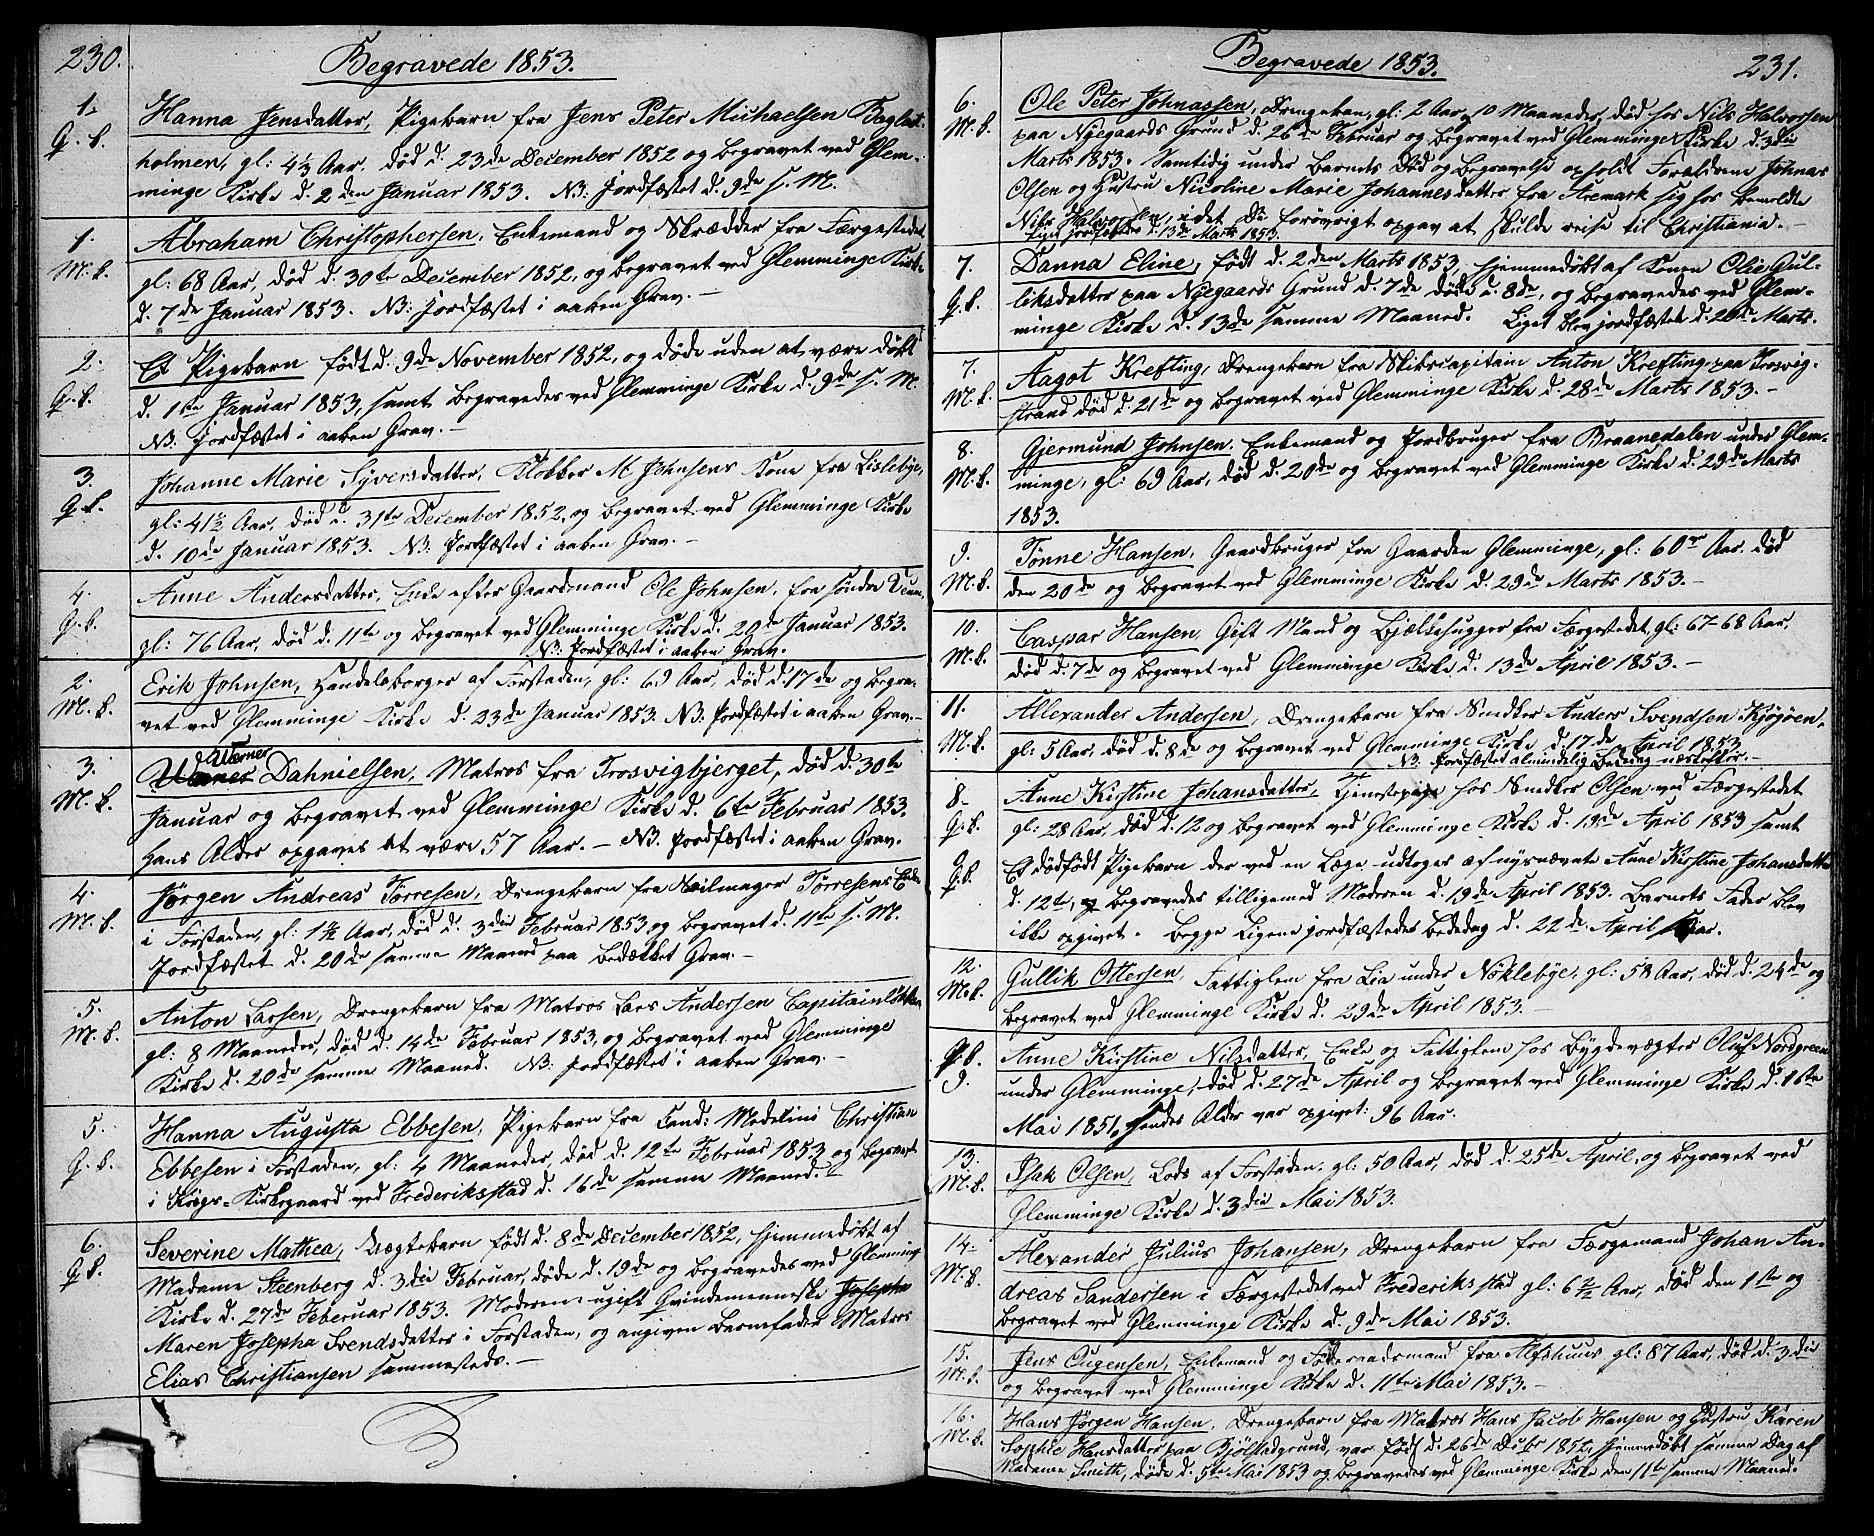 230.
Begravede 1853.
1.
Q. K.
Hanna Jensdatter, Pigebarn fra Jens Peter Michaelsen
holmen, gl: 4⅓ Aar. død d. 23de December 1852 og begravet ved Glem-
minge Kirke d. 2den Januar 1853. NB: Jordfæstet d. 9de s. M.
1.
M. K.
Abraham Christophersen, Enkemand og Skrædder fra Færgestedet
gl: 68 Aar, død d. 30te December 1852, og begravet ved Glemminge Kirke
d. 7de Januar 1853. NB: Jordfæstet i aaben Grav.-
2.
Q. K.
Et Pigebarn født d. 9de November 1852, og døde uden at være døbt
d. 1ste Januar 1853, samt begravedes ved Glemminge Kirke d. 9de s. M.
NB. Jordfæstet i aaben Grav.-
3.
Q. K.
Johanne Marie Syversdatter, Klokker M Johnsens Kone fra Lislebye,
gl: 41½ Aar, død d. 31te December 1852, og begravet ved Glemminge Kirke
d. 10de Januar 1853. NB. Jordfæstet i aaben Grav.-
4.
Q. K.
Anne Andersdatter, Enke efter Gaardmand Ole Johnsen, fra søndre
gl: 76 Aar, død d. 11te og begravet ved Glemminge Kirke d. 20de Januar 1853.
NB. Jordfæstet i aaben Grav.
2.
M. K.
Erik Johnsen, Handelsborger af Forstaden, gl: 69 Aar, død d. 17de og begra-
vet ved Glemminge Kirke d. 23de Januar 1853. NB. Jordfæstet i aaben Grav.-
3.
M. K.
Werner
Dahnielsen, Matros fra Trosvigbjerget, død d. 30te
Januar og begravet ved Glemminge Kirke d. 6te Februar 1853.
Hans Alder opgaves at være 57 Aar.- NB. Jordfæstet i aaben Grav.
4.
M. K.
Jørgen Andreas Tørresen, Drengebarn fra Seilmager Tørresens Enke
i Forstaden, gl: 1½ Aar, død d. 3die Februar 1853 og begravet d. 11te s. M.
Jordfæstet d. 20de samme Maaned paa bedækket Grav.-
5.
M. K.
Anton Larsen, Drengebarn fra Matros Lars Andersen Capitainløkken
gl: 8 Maaneder, død d. 14de Februar 1853, og begravet ved Glemminge
Kirke d. 20de samme Maaned. NB. Jordfæstet i aaben Grav.-
5.
Q. K.
Hanna Augusta Ebbesen, Pigebarn fra Cand: Medicini Christian
Ebbesen i Forstaden, gl: 4 Maaneder, død d. 12te Februar 1853 og begravet
i Krigs-Kirkegaard ved Frederiksstad d. 16de samme Maaned.-
6.
Q. K.
Severine Mathea, Uægtebarn født d. 8de December 1852, hjemmedøbt af
Madame Steenberg d. 3die Februar, døde d. 19de og begravedes ved Glemminge
Kirke d. 27de Februar 1853. Moderen: ugift Qvindemenneske Josepha
Maren Josepha Svendsdatter i Forstaden, og angiven Barnefader Matros
Elias Christiansen sammesteds.-
Begravede 1853.
231.
6.
M. K.
Ole Peter Johnassen, Drengebarn, gl: 2 Aar 10 Maaneder, død hos Nils Halvorsen
paa Nygaards Grund d. 26de Februar og begravet ved Glemminge Kirke d. 3die
Marts 1853. Samtidig under Barnets Død og Begravelse opholdt Forældrene Johnas
Olsen og Hustru Nicoline Marie Johannesdatter fra Aremark sig hos bemeldte
Nils Halvorsen, idet De forøvrigt opgav at skulde reise til Christiania.-
Liget jordfæstet d. 13de Marts 1853.
7.
Q. K.
Danna Eline, født d. 2den Marts 1853. hjemmedøbt af Konen Olie Gul-
liksdatter paa Nygaards Grund d. 7de døde d. 8de, og begravedes ved Glem-
minge Kirke d. 13de samme Maaned. Liget blev jordfæstet d. 20de Marts.
7.
M. K.
Aagot Krefting, Drengebarn fra Skibscapitain Anton Krefting paa Trosvig-
strand død d. 21de og begravet ved Glemminge Kirke d. 28de Marts 1853.-
8.
M. K.
Gjermund Johnsen, Enkemand og Jordbruger fra Braanedalen under Glem-
minge, gl: 69 Aar, død d. 20de og begravet ved Glemminge Kirke d. 29de Marts
1853.
9.
M. K.
Tønne Hansen, Gaardbruger fra Gaarden Glemminge, gl: 60 Aar. død
den 20de og begravet ved Glemminge Kirke d. 29de Marts 1853.-
10.
M. K.
Caspar Hansen, Gift Mand og Bjælkehugger fra Færgestedet, gl: 67-68 Aar,
død d. 7de og begravet ved Glemminge Kirke d. 13de April 1853.-
11.
M. K.
Allexander Andersen, Drengebarn fra Smedker Anders Svendsen Kjøgøen,
gl: 5 Aar, død d. 8de og begravet ved Glemminge Kirke d. 17de April 1853
NB. Jordfæstet almindelig Bededag næstefter.-
8.
Q. K.
Anne Kirstine Johansdatter, Tjenestepige hos Snedker Olsen ved Færgestedet
gl: 28 Aar, død d. 12 og begravet ved Glemminge Kirke d. 19de April 1853 samt
Q. K.
Et dødfødt Pigebarn der ved en Læge udtoges af nysnævnte Anne Kirstine Johansdatter
d. 12te, og begravedes tilligemed Moderen d. 19de April 1853. Barnets Fader blev
ikke opgivet. Begge Ligene jordfæstedes Bededag d. 22de April
12.
M. K.
Gullik Ottersen, Fattiglem fra Lia under Nøklebye, gl: 58 Aar, død d. 24de og
begravet ved Glemminge Kirke d. 29de April 1853.-
Q. K.
9.
Anne Kirstine Nilsdatter, Enke og Fattiglem hos Bygdevægter Oluf Nordgreen
under Glemminge, død d. 27de April og begravet ved Glemminge Kirke d. 16te
Mai 1851, hendes Alder var opgivet: 96 Aar.
13.
M. K.
Isak Olsen, Lods af Forstaden, gl: 50 Aar, død d. 25de April, og begravet ved
Glemminge Kirke d. 3die Mai 1853.
14.
M. K.
Alexander Julius Johansen, Drengebarn fra Færgemand Johan An-
dreas Sandersen i Færgestedet ved Frederiksstad gl: 6 Aar, død den 1ste og
begravet ved Glemminge Kirke d. 9de Mai 1853.
15.
M. K.
Jens Eugensen, Enkemand og Føderaadsmand fra Alfshuus gl: 87 Aar, død d. 3die
og begravet ved Glemminge Kirke d. 11te Mai 1853.-
16.
M. K.
Hans Jørgen Hansen, Drengebarn fra Matros Hans Jacob Hansen og Hustru Karen
Sophie Hansdatter paa Bjølstadgrund, var født d. 26de Decbr 1852, hjemmedøbt samme Dag af
Madame Smith, døde d. 5te Mai 1853 og begravedes ved Glemminge Kirke den 11te samme Maaned.